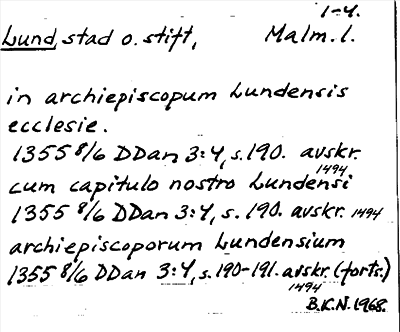 1-4.
Lund, stad o. stift, Malm. l.
in archiepiscopum Lundensis
ecclesie.
1355 8/6 DDan 3:4, s. 190. avskr.
1494
cum capitulo nostro Lundensi
1355 8/6 DDan 3:4, s. 190. avskr. 1494
archiepiscoporum Lundensium
1355 8/6 DDan 3:4, s. 190-191. avskr. (forts.)
1494
B.K.N. 1968.